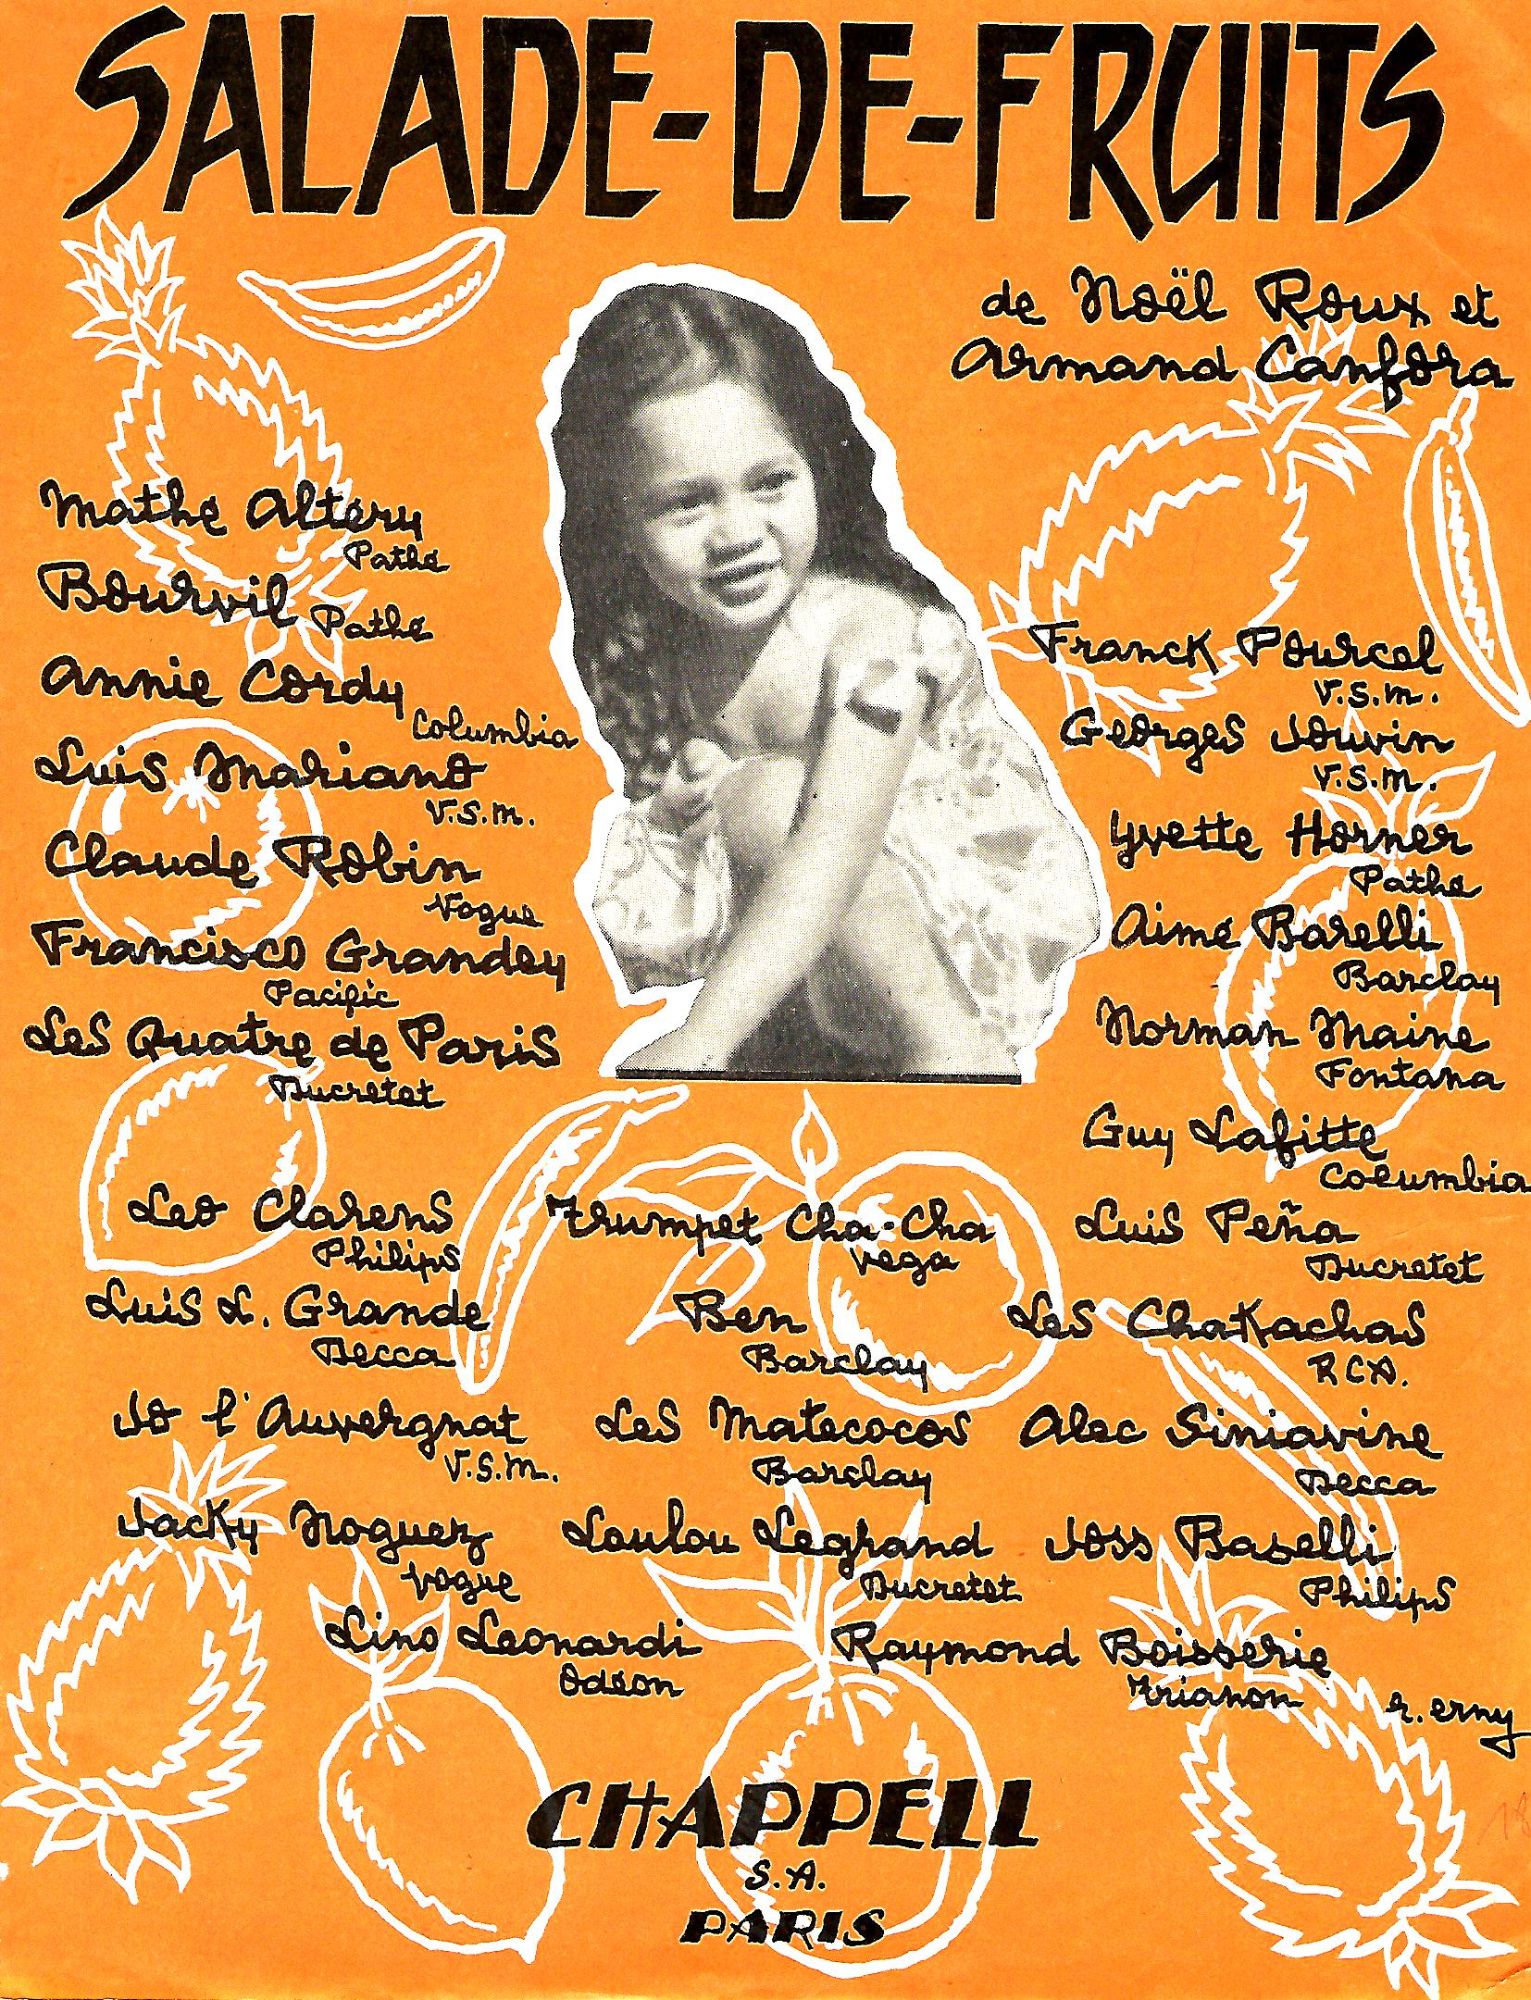 SALADE-DE-FRUITS
de Noël Roux et
Armand Canfora
Mathé Altéry
Pathé
Bourvil Pathé
Annie Cordy
Columbia
Luis Mariano
V.S.M.
Claude Robin
Vogue
Francisco Grandey
Pacific
Les Quatre de Paris
Ducretet
Franck Pourcel
V.S.M.
Georges Jouvin
V.S.M.
Yvette Horner
Pathé
Aimé Barelli
Barclay
Norman Maine
Fontana
Guy Lafitte
Columbia
Leo Clarens
Philips
Trumpet Cha-Cha
Vega
Luis Peña
Ducretet
Luis L. Grande
Decca
Ben
Barclay
Les Chakachas
RCA.
Jo l'Auvergnat
V.S.M.
Les Matecocos
Barclay
Alec Siniavine
Decca
Jacky Noguez
Vogue
Loulou Legrand
Ducretet
Joss Baselli
Philips
Lino Leonardi
Odéon
Raymond Boisserie
Trianon
r. erny
CHAPPELL
S.A.
PARIS